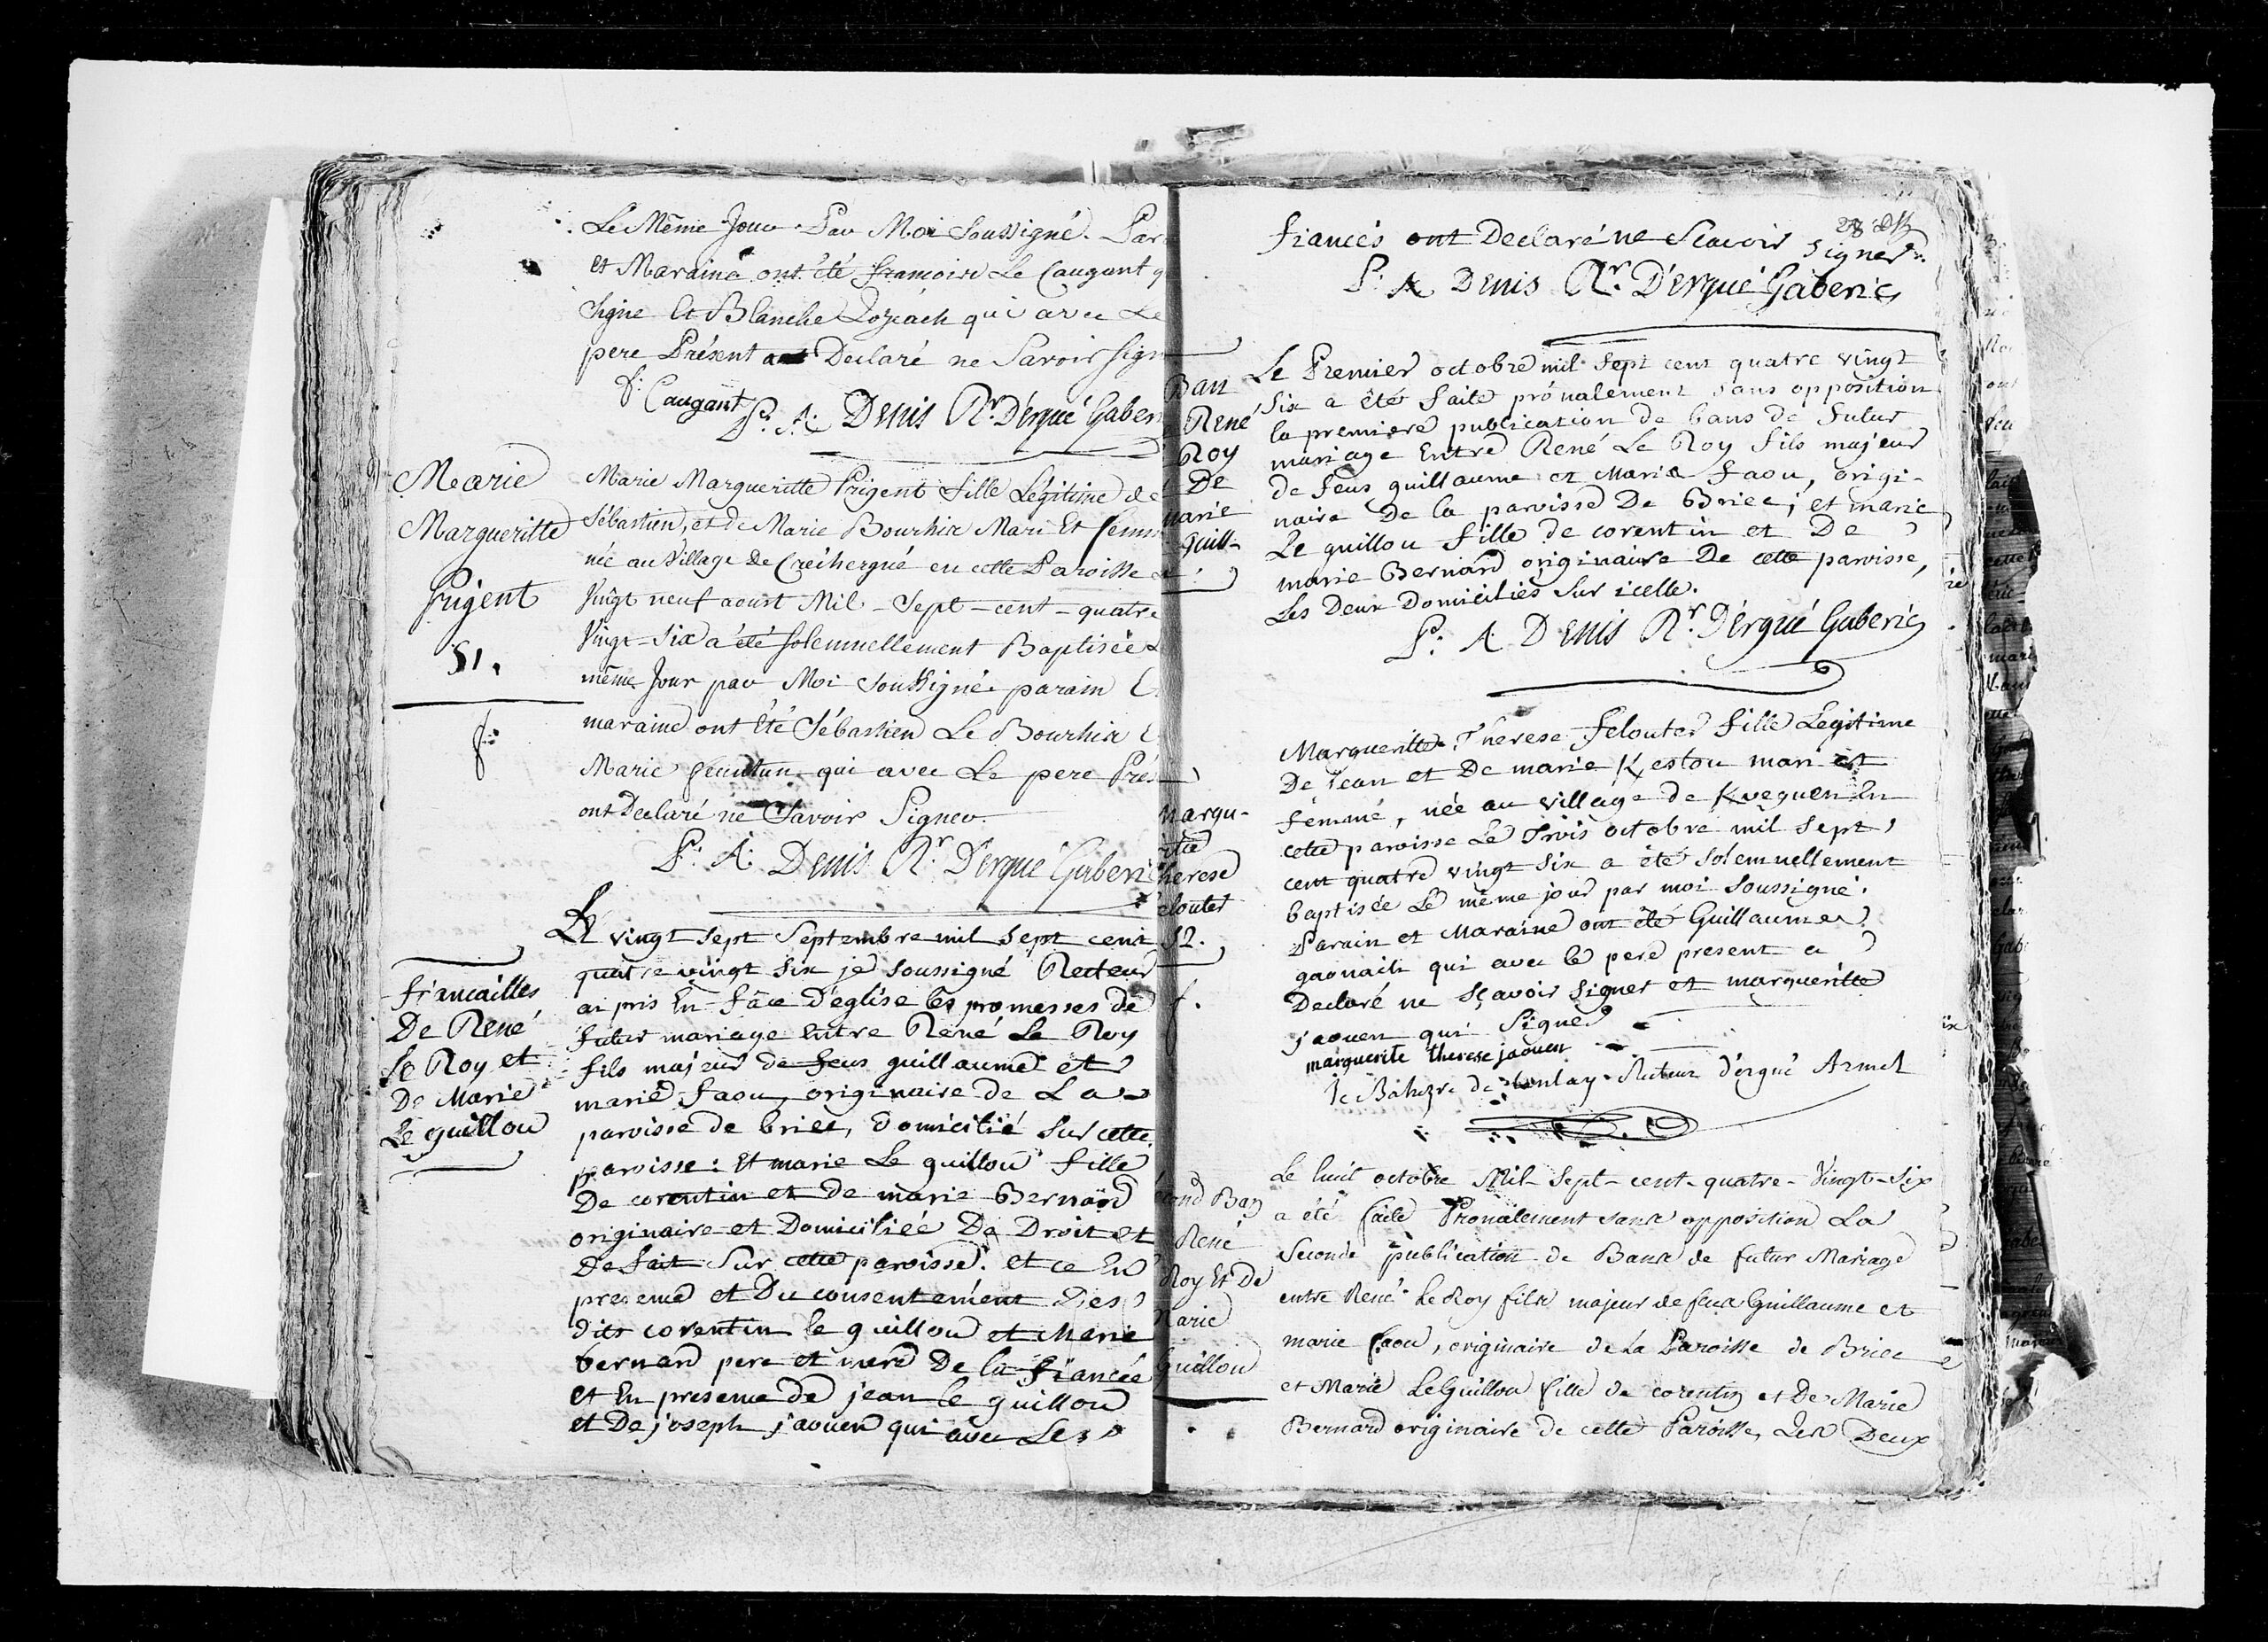 Le Même Jour Par Moi Soussigné. Par
et Maraine ont été françoise Le Caugant q
Signe Et Blanche Lozeach qui avec Le
pere Présent a Declaré ne Savoir sign
f: Caugant
P: A: Denis R.r D'ergué Gaber
Marie
Margueritte
Prigent
51.
f:
Marie Margueritte Prigent fille Légitime de
Sébastien, et de Marie Bourhix Mari Et femm
née au Village De Creïhergué en cette Paroisse L
Vingt neuf aoust Mil - Sept - cent - quatre
Vingt - Six a été solemnellement Baptisée L
même Jour par Moi Soussigné. parain
maraine ont Eté Sébastien Le Bourhix
Marie qui avec Le pere Prés
ont Declaré ne Savoir Signer.
P: A: Denis R.r D'ergué Gaberi
francailles
De René
Le Roy et
De Marie
Le guillou
Le vingt sept Septembre mil sept cent
quatre vingt six je soussigné Recteur
ai pris En face D'eglise les promesses de
futur mariage Entre René Le Roy
fils majeur de feus guillaume et
marie faou, originaire de La
paroisse de briec, domicilié sur cette
paroisse: Et marie Le guillou fille
De corentin et de marie Bernard
originaire et Domiciliée De Droit et
De fait Sur cette paroisse. et ce En
presence et Du consentement Des
dits corentin le guillou et Marie
bernard pere et mere De la fiancée
et En presence de jean le guillou
et De joseph jaouen qui avec Les
28
fiancés ont Declaré ne Scavoir Signer.
P: A Denis R.r D'ergué Gaberic
Ban
René
Roy
De
marie
Guill-
Le Premier octobre mil Sept cent quatre vingt
Six a été faite prônalement sans opposition
la premiere publication de bans de futur
mariage Entre René Le Roy fils majeur
de feus guillaume et Marie faou, origi-
naire De la paroisse De Briec; et marie
Le guillou fille de corentin et De
marie Bernard originaire De cette paroisse,
Les Deux Domiciliés Sur icelle.
P: A Denis R.r D'ergué Gaberic
Margu-
itte
herese
eloutet
52.
f.
Margueritte Therese feloutet fille Légitime
De jean et De marie Kestou mari et
femme, née au village de Kveguen En
cette paroisse Le Trois octobre mil sept
cent quatre vingt six a été solemnellement
baptisée Le même jour par moi Soussigné.
Parain et Maraine ont été Guillaume
gaonach qui avec le pere present a
Declaré ne Sçavoir Signer et margueritte
jaouen qui Signe
marguerite therese jaouen
Recteur d'ergué Armel
cond Ban
René
Roy Et De
Marie
Guillou
Le huit octobre Mil- Sept- cent- quatre- Vingt-Six
a été faite Pronalement sans opposition La
Seconde publication de Bans de futur Mariage
entre René Le Roy fils majeur de feus Guillaume et
marie faou, originaire de La Paroisse de Briec
et Marie Le Guillou fille de corentin et De Marie
Bernard originaire de cette Paroisse, Les Deux